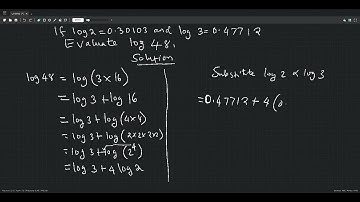 If log2=0.30103 and log 3=0.47712
Evaluate log 48.
Solution
log 48 = log (3×16)
= log 3 + log 16
= log 3 + log (4×4)
= log 3 + log (2×2×2×2)
= log 3 + log (2⁴)
= log 3 + 4 log 2
Substitute log 2 & log 3
= 0.47712 + 4 (0.